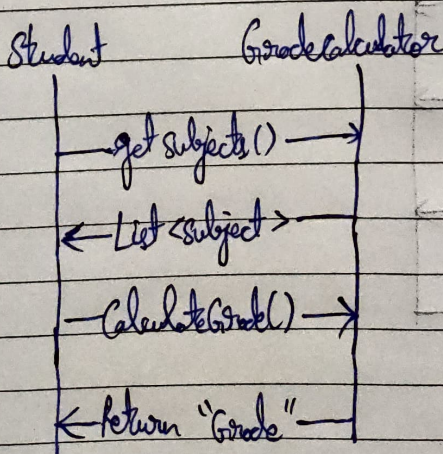 Student GradeCalculator
get subjects()
List <subject>
CalculateGrade()
Return "Grade"